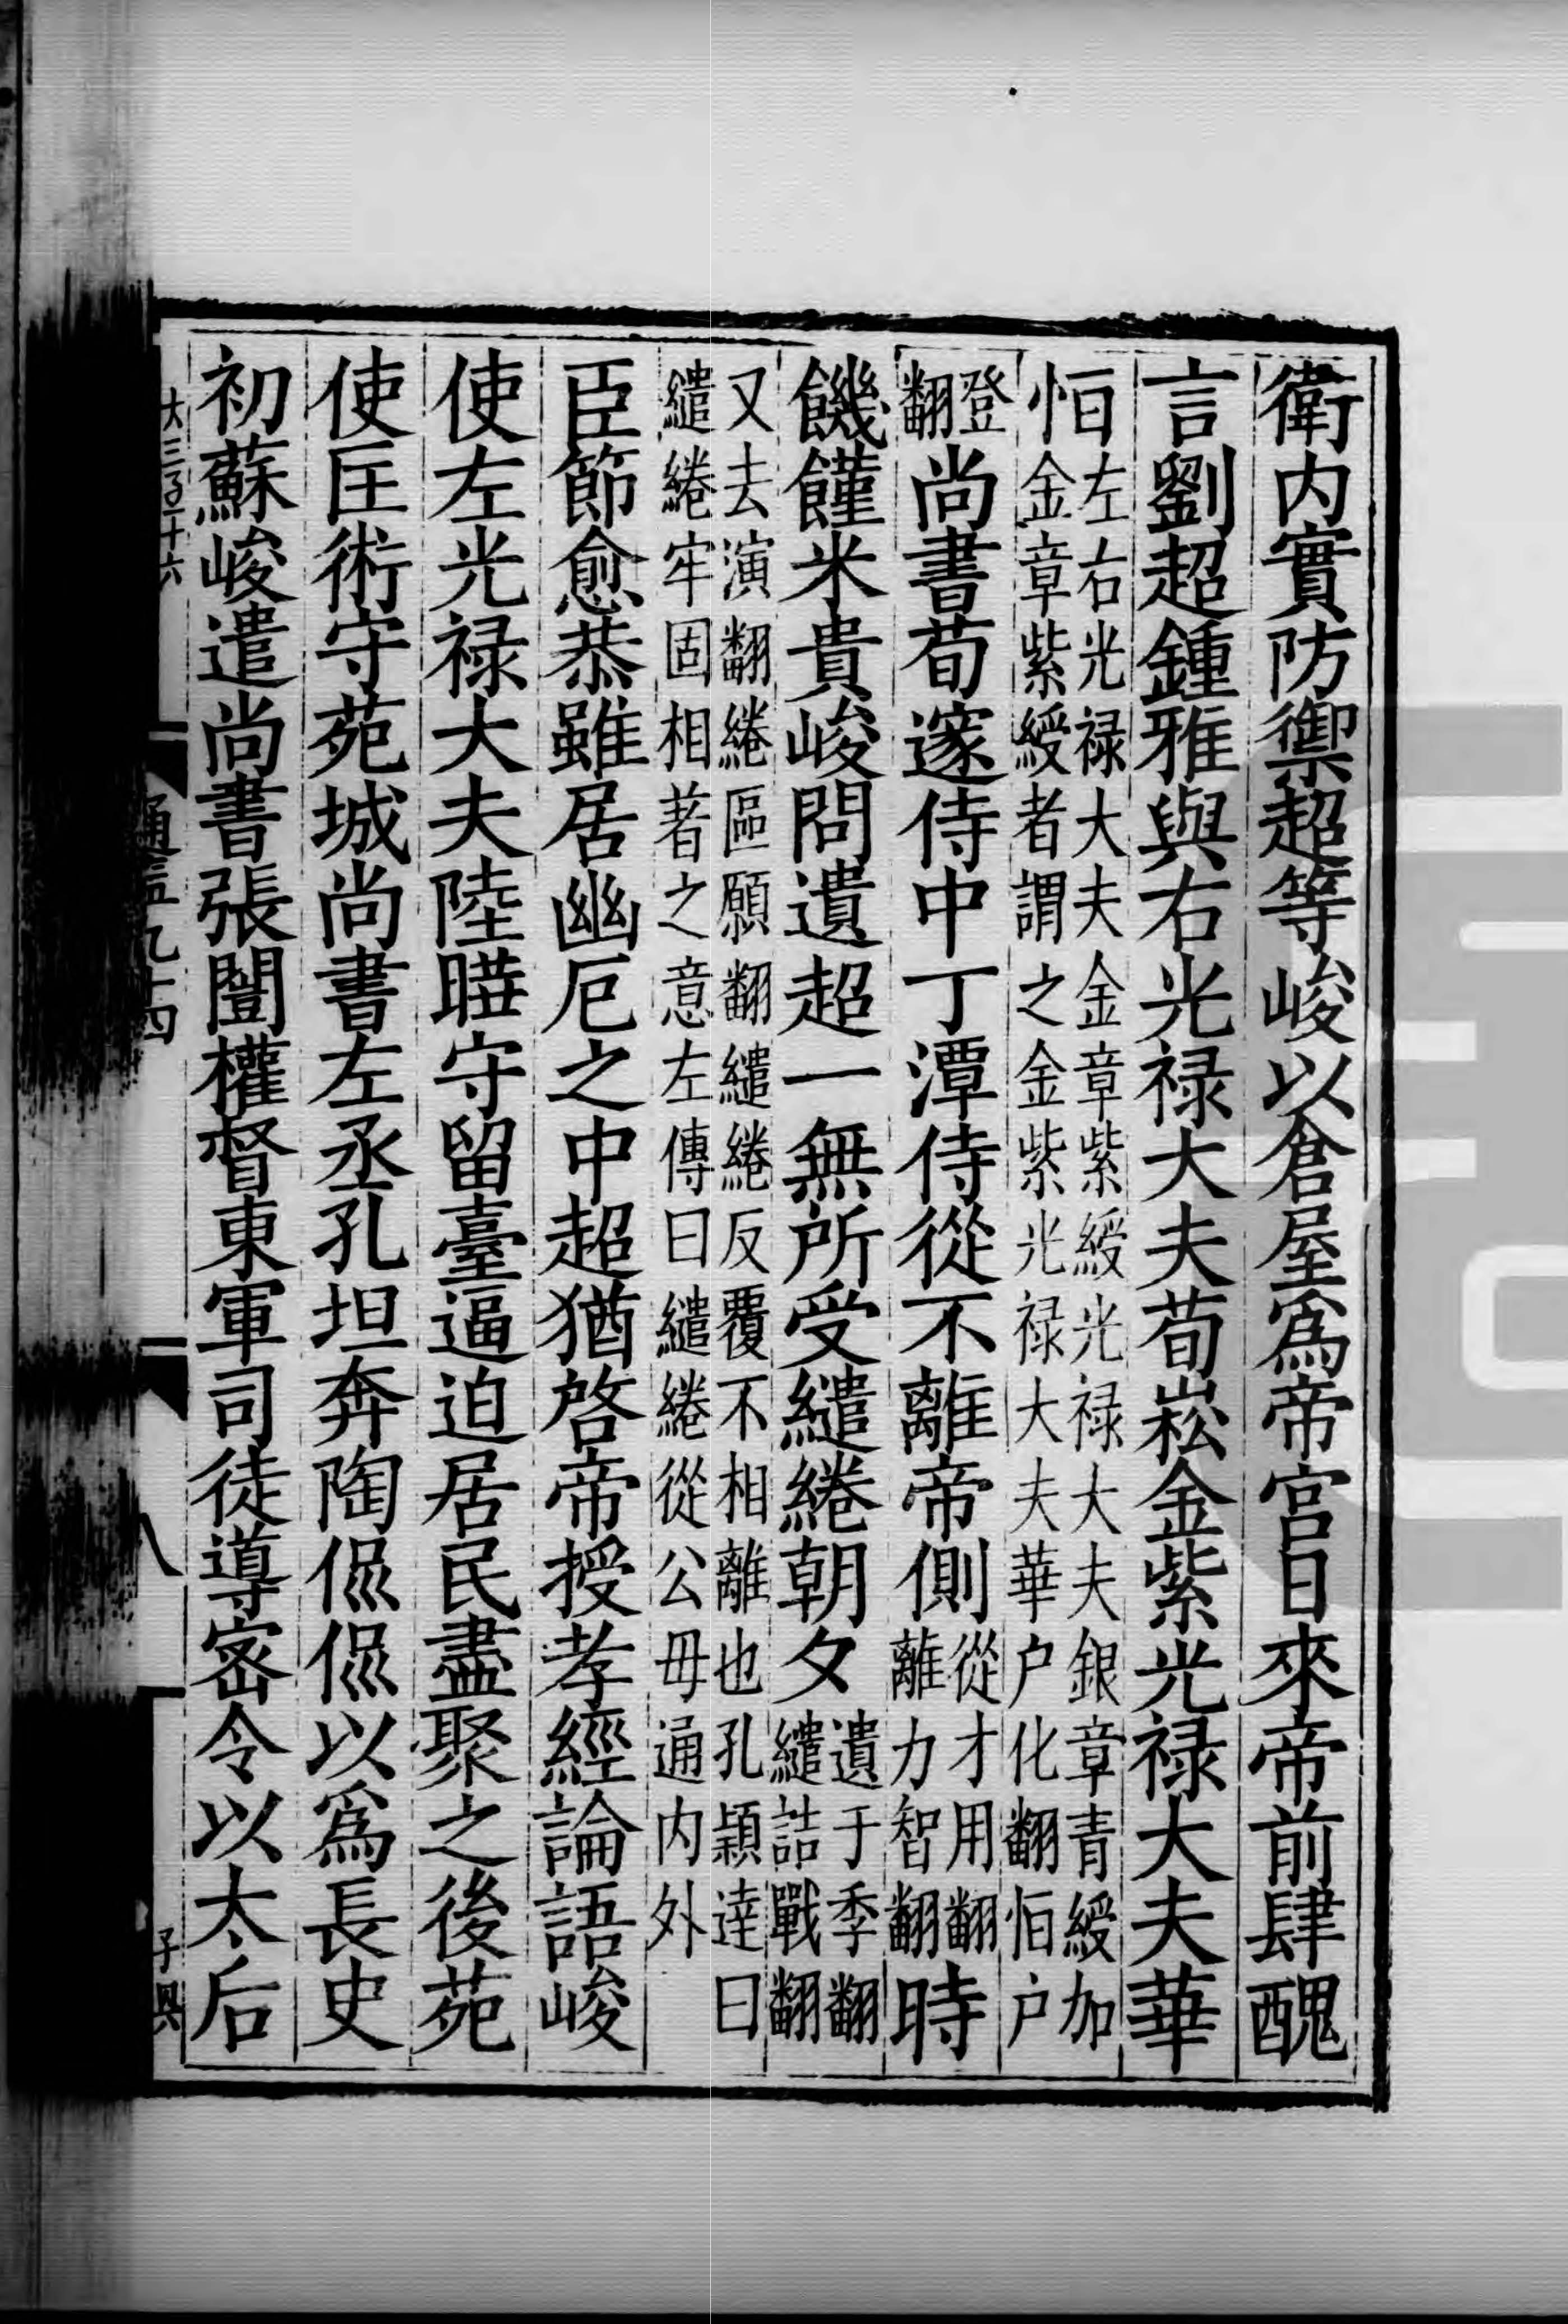 衛内實防禦超等峻以倉屋爲帝宫日來帝前肆醜
言劉超鍾雅與右光禄大夫荀崧金紫光禄大夫華
恒左右光禄大夫金章紫綬光禄大夫銀章青綬加金章紫綬者謂之金紫光禄大夫華户化翻恒户
登翻尚書荀邃侍中丁潭侍從不離帝側從才用翻離力智翻時
饑饉米貴峻問遺超一無所受繾綣朝夕遺于季翻繾詰戰翻
又去演翻綣區願翻繾綣反覆不相離也孔穎達曰繾綣牢固相著之意左傳曰繾綣從公毋通内外
臣節愈恭雖居幽厄之中超猶啓帝授孝經論語峻
使左光禄大夫陸曄守留臺逼迫居民盡聚之後苑
使匡術守苑城尚書左丞孔坦奔陶侃侃以爲長史
初蘇峻遣尚書張闓權督東軍司徒導密令以太后
通鑑九十四
八